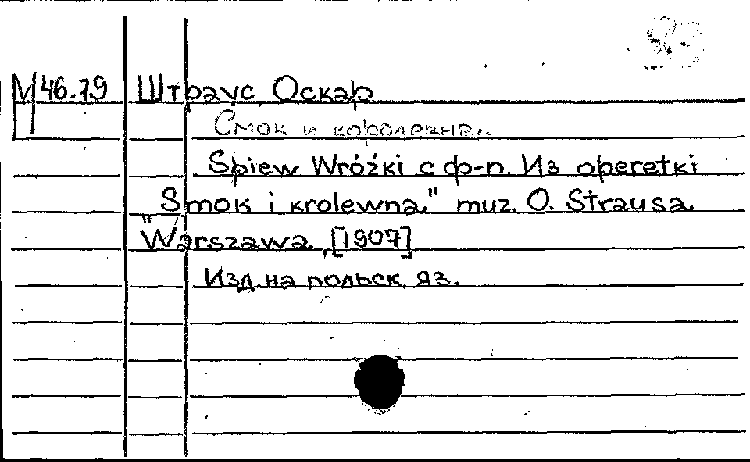 М 46.79 Штраус, Оскар
Смок и королевна.
Spiew Wróżki с ф-п. Из operetki
"Smok i krolewna" muz. O. Strausa.
Warszawa, [1907]
Изд. на польск. яз.